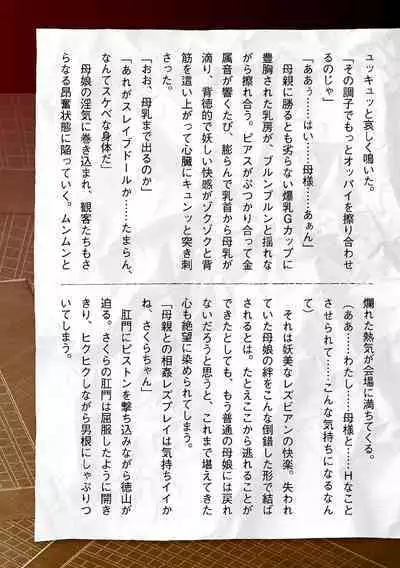 ュッキュッと哀しく鳴いた。
「その調子でもっとオッパイを擦り合わせ
るのじゃ」
「ああぅ……はい……母様……あぁん」
　母親に勝るとも劣らない爆乳Gカップに
豊胸された乳房が、ブルンブルンと揺れな
がら擦れ合う。ピアスがぶつかり合って金
属音が響くたび、膨らんで乳首から母乳が
滴り、背徳的で妖しい快感がゾクゾクと背
筋を這い上がって心臓にキュンッと突き刺
さった。
「おお、母乳まで出るのか」
「あれがスレイブドールか……たまらん、
なんてスケベな身体だ」
　母娘の淫気に巻き込まれ、観客たちもさ
らなる昂奮状態に陥っていく。ムンムンと
爛れた熱気が会場に満ちてくる。
（ああ……わたし……母様と……Hなこと
させられて……こんな気持ちになるなん
て）
　それは妖美なレズビアンの快楽。失われ
ていた母娘の絆をこんな倒錯した形で結ば
されるとは。たとえここから逃れることが
できたとしても、もう普通の母娘には戻れ
ないだろうと思うと、これまで堪えてきた
心も絶望に染められてしまう。
「母親との相姦レズプレイは気持ちイイか
ね、さくらちゃん」
　肛門にピストンを撃ち込みながら徳山が
迫る。さくらの肛門は屈服したように開き
きり、ヒクヒクしながら男根にしゃぶりつ
いてしまう。